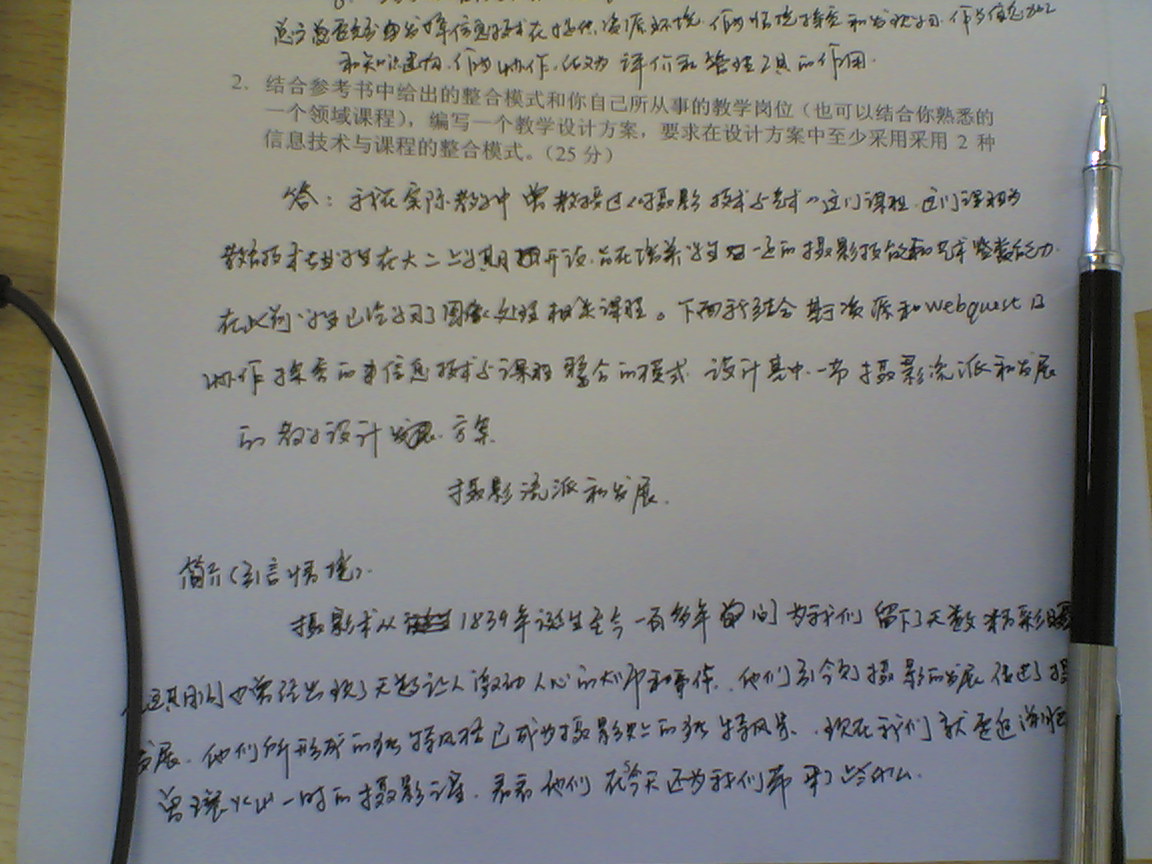 和知识建构、作为协作、作为评价和管理工具的作用.
2. 结合参考书中给出的整合模式和你自己所从事的教学岗位（也可以结合你熟悉的
一个领域课程），编写一个教学设计方案，要求在设计方案中至少采用采用 2 种
信息技术与课程的整合模式。（25 分）
答：我在实际教学中曾教授过《摄影技术与艺术》这门课程.这门课程为
教育技术专业学生在大二上学期开设,旨在培养学生一定的摄影技能和艺术鉴赏能力.
在此前学生已学习了图像处理相关课程。下面我结合基于资源和webquest及
协作探索的信息技术与课程整合的模式.设计其中一节摄影流派和发展
的教学设计方案.
摄影流派和发展.
简介(引言情境).
摄影术从1839年诞生至今一百多年间为我们留下了无数精彩
这其间也曾经出现了无数让人激动人心的大师和事件.他们引领了摄影的发展.促进了摄
发展.他们所形成的独特风格已成为摄影史上的独特风景.现在我们就要追溯
曾一时的摄影之流.看看他们在今天还为我们带来了些什么.